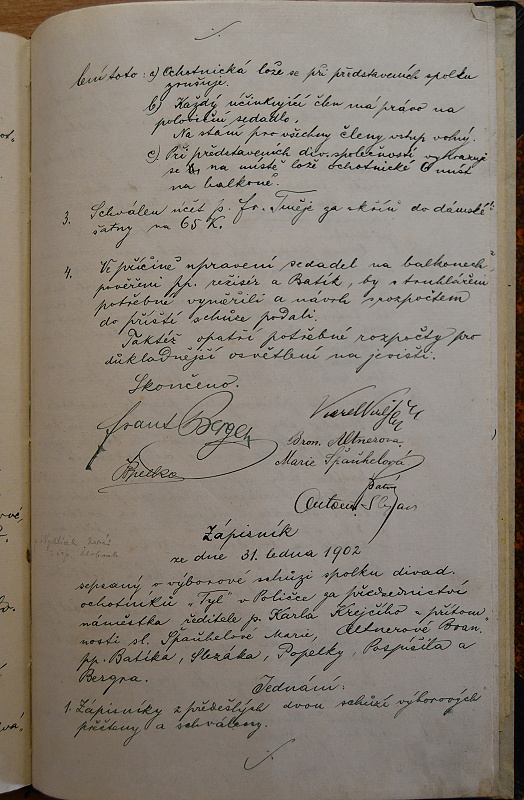 lení toto: a) Ochotnická lože se při představeních spolku
zrušuje.
b) Každý účinkující člen má právo na
poloviční sedadlo.
Na stání pro všechny členy vstup volný.
c) Při představeních div. společností vyhrazuje
se na místě lože ochotnické 6 míst
na balkoně.
3. Schválen účet p. Fr. Tměje za skříň do dámské
šatny na 65 K.
4. Ve příčině upravení sedadel na balkonech
pověřeni pp. režisér a Batík, by s truhlářem
potřebné vyměřili a návrh s rozpočtem
do příští schůze podali.
Taktéž opatří potřebné rozpočty pro
důkladnější osvětlení na jevišti.
Skončeno.
Frant Berger
Popelka
Bron. Altnerova
Marie Špaňhelová
Batík
Antonín
Zápisník
ze dne 31. ledna 1902
sepsaný o výborové schůzi spolku divad.
ochotníků „Tyl" v Poličce za předsednictví
náměstka ředitele p. Karla Krejčího a přítom
nosti sl. Špaňhelové Marie, Altnerové Bron.
pp. Batíka, Slezáka, Popelky, Pospíšila a
Bergra.
Jednání:
1. Zápisníky z předešlých dvou schůzí výborových
přečteny a schváleny.